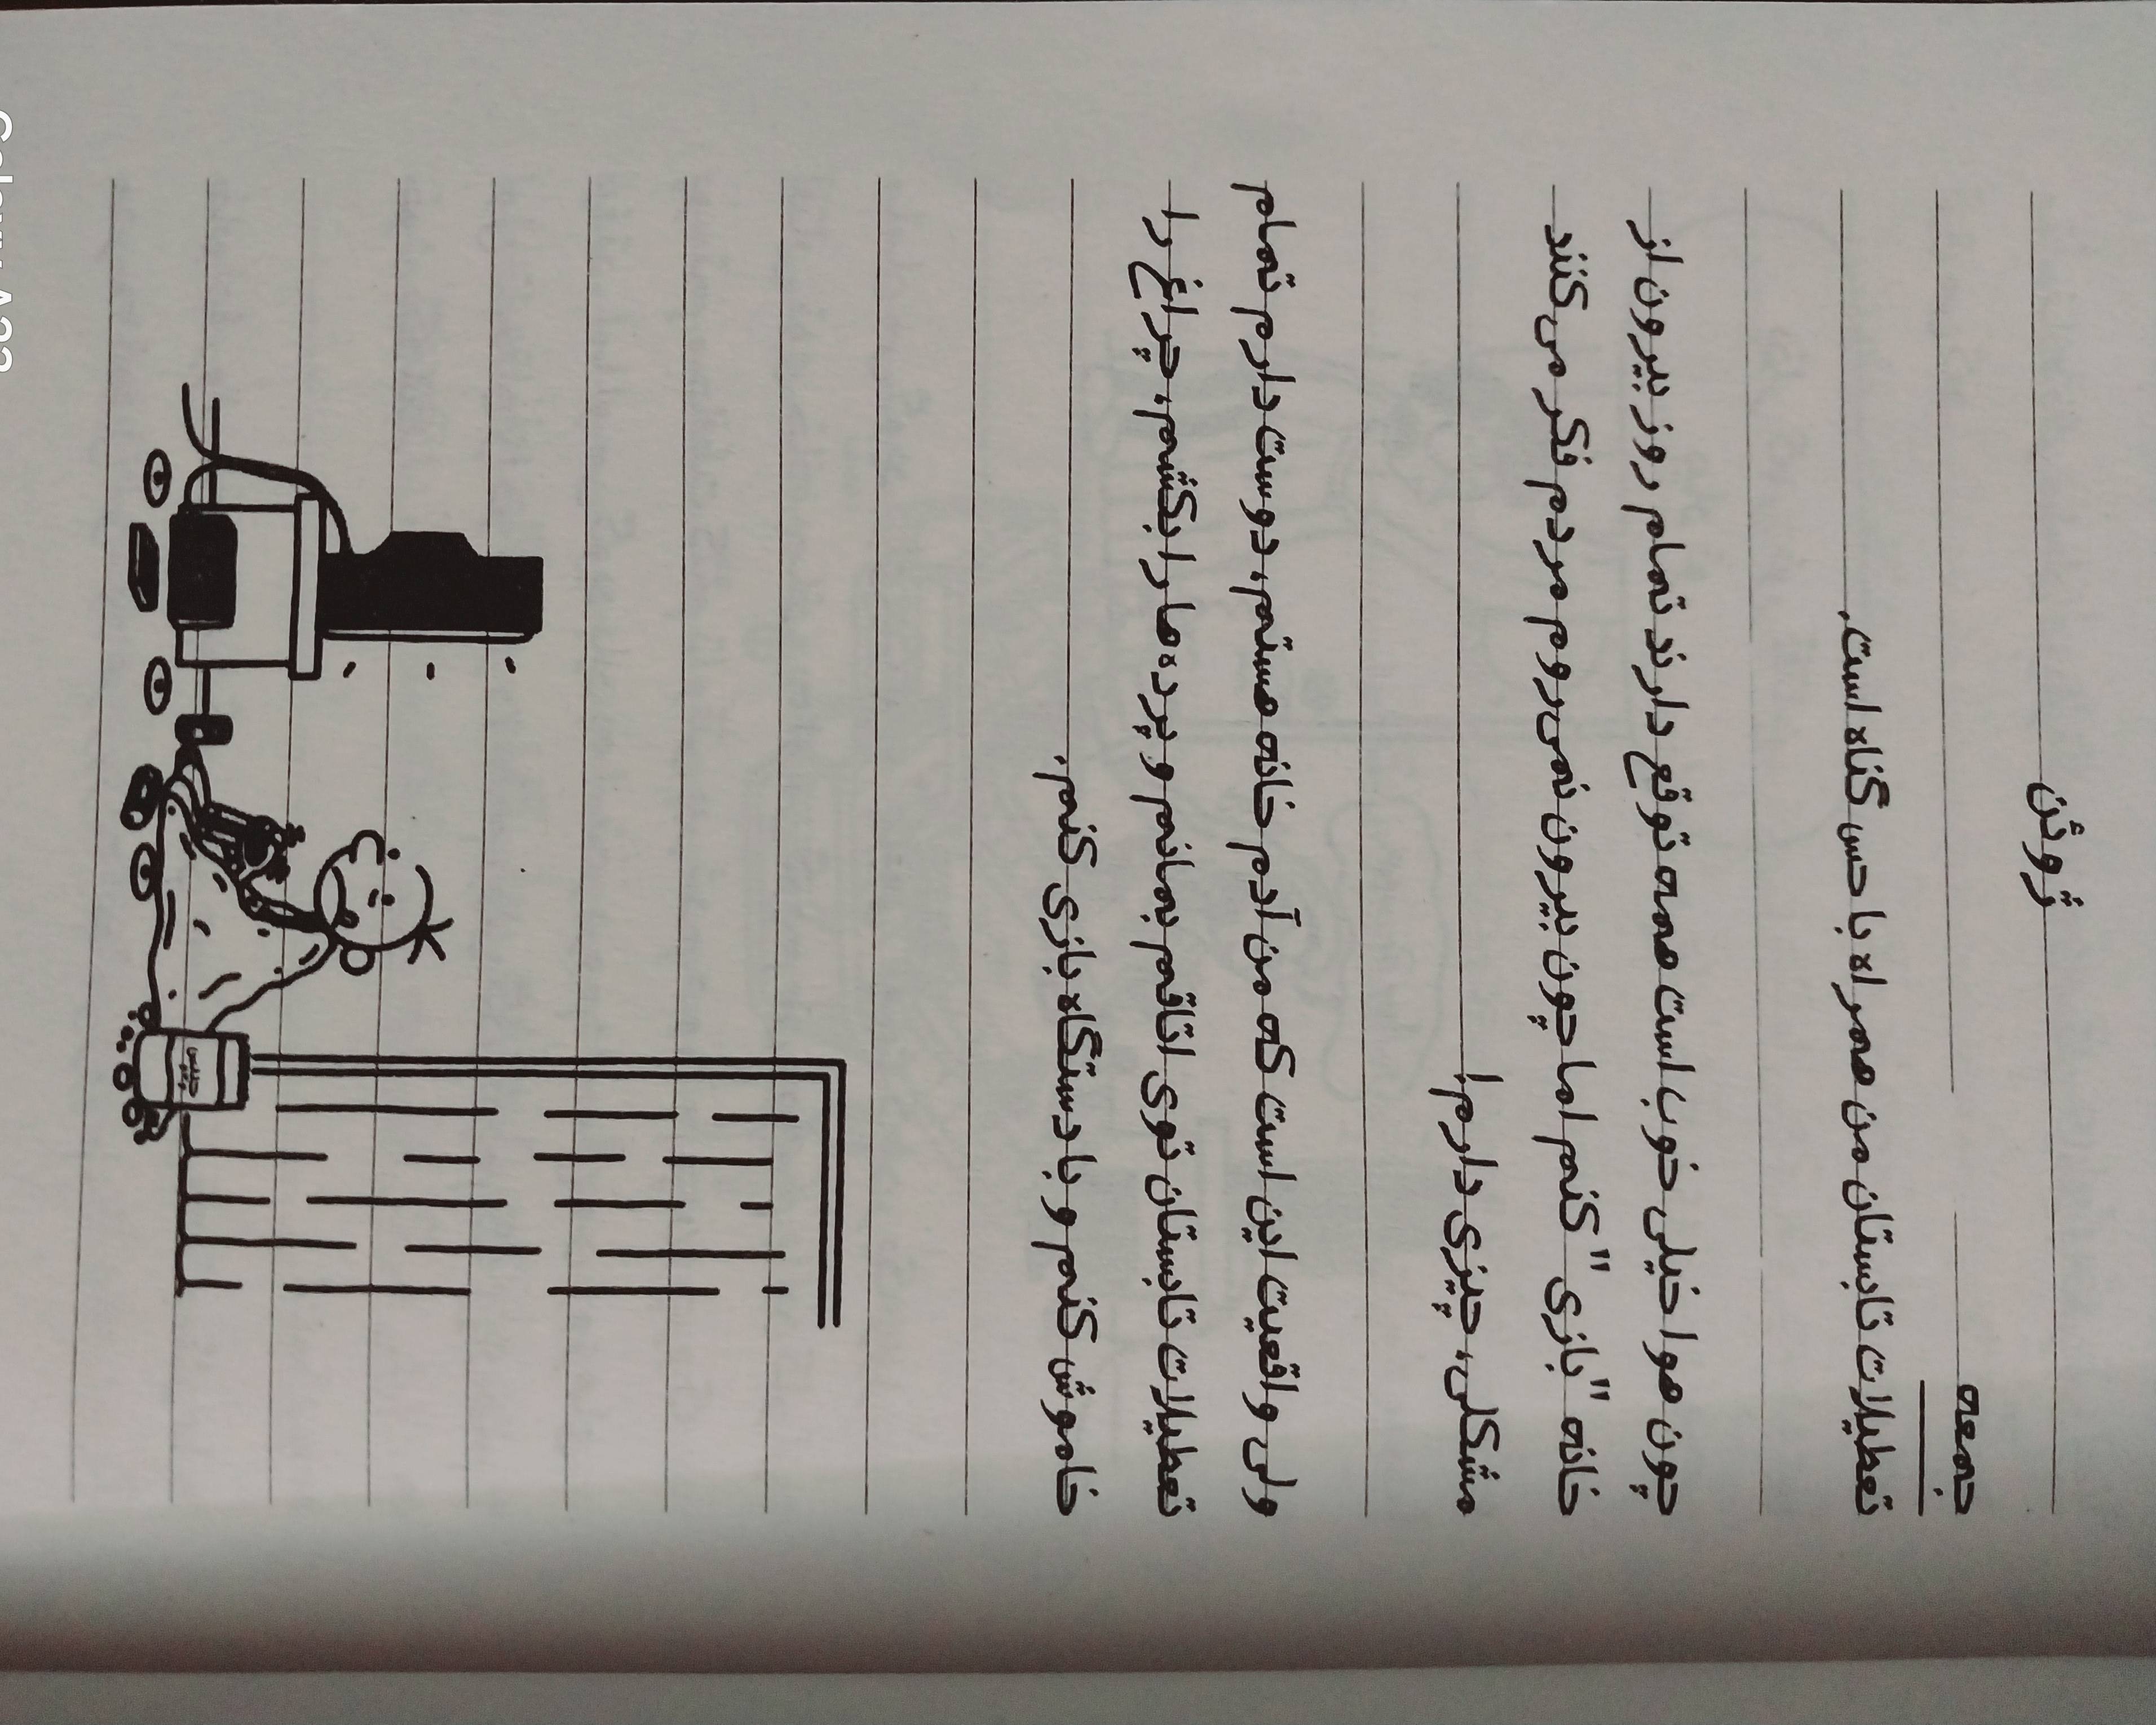 ژوئن
جمعه
تعطیلات تابستان من همراه با حس گناه است.
چون هوا خیلی خوب است همه توقع دارند تمام روز بیرون از
خانه "بازی" کنم اما چون بیرون نمی‌روم مردم فکر می‌کنند
مشکلی، چیزی دارم!
ولی واقعیت این است که من آدم خانه هستم، دوست دارم تمام
تعطیلات تابستان توی اتاقم بمانم و پرده‌ها را بکشم، چراغ را
خاموش کنم و با دستگاه بازی کنم.